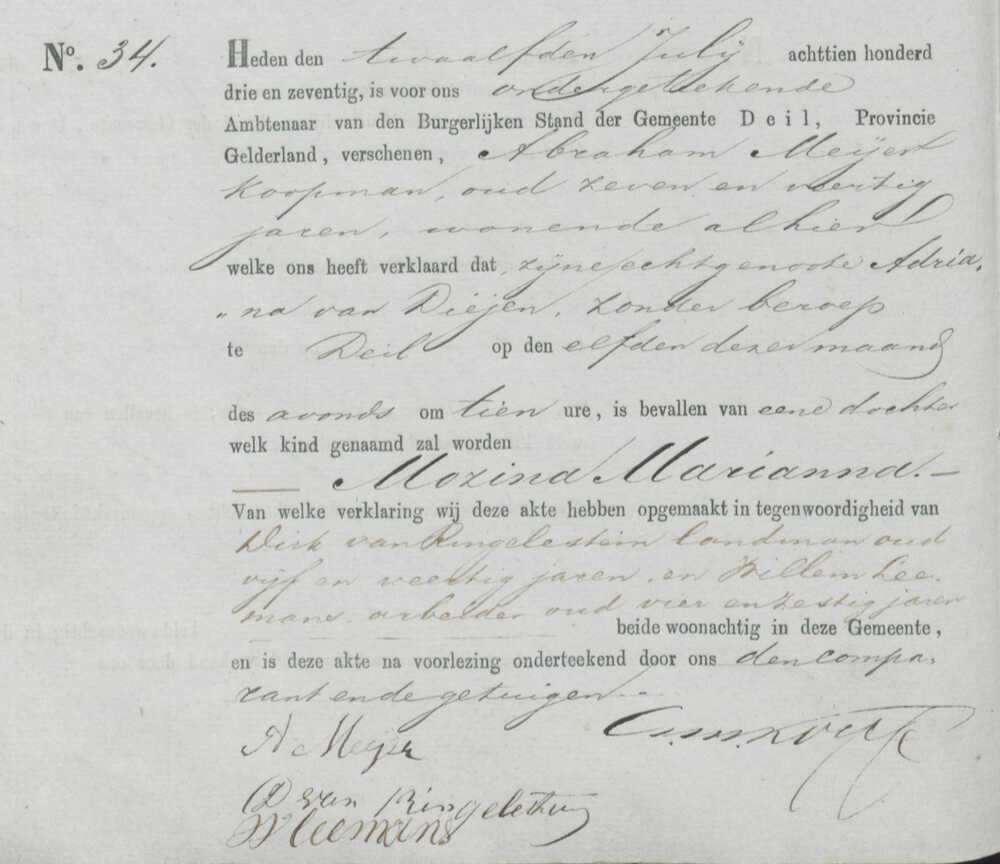 No. 34.
Heden den twaalfden Julij achttien honderd
drie en zeventig, is voor ons ondergetekende
Ambtenaar van den Burgerlijken Stand der Gemeente Deil, Provincie
Gelderland, verschenen, Abraham Meijer
koopman, oud zeven en veertig
jaren, wonende alhier
welke ons heeft verklaard dat zijne echtgenoote Adria„
„na van Diejen, zonder beroep
te Deil op den elfden dezer maand
des avonds om tien ure, is bevallen van eene dochter
welk kind genaamd zal worden
Mozina Marianna.
Van welke verklaring wij deze akte hebben opgemaakt in tegenwoordigheid van
Dirk van Ringelestein landman oud
vijf en veertig jaren, en Willem Lee„
mans, arbeider oud vier en zestig jaren
beide woonachtig in deze Gemeente,
en is deze akte na voorlezing onderteekend door ons den compa„
rant en de getuigen.
A Meijer
D van Ringelestein
W Leemans